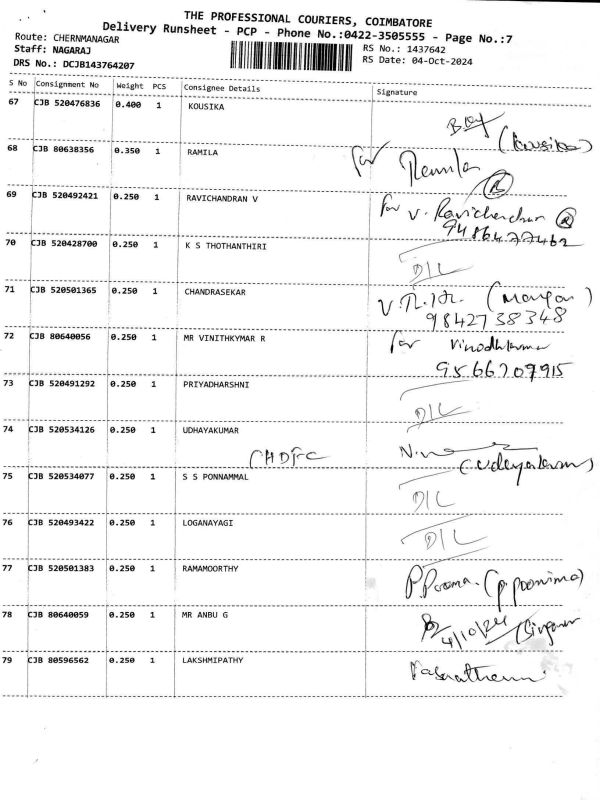 THE PROFESSIONAL COURIERS, COIMBATORE
Delivery Runsheet - PCP - Phone No.:0422-3505555 - Page No.:7
Route: CHERNMANAGAR
RS No.: 1437642
Staff: NAGARAJ
RS Date: 04-Oct-2024
DRS No.: DCJB143764207
S No Consignment No Weight PCS Consignee Details Signature
67 CJB 520476836 0.400 1 KOUSIKA
(Kousika)
68 CJB 80638356 0.350 1 RAMILA
for Ramila
69 CJB 520492421 0.250 1 RAVICHANDRAN V
for V. Ravichandran
9486477462
70 CJB 520428700 0.250 1 K S THOTHANTHIRI
D/L
71 CJB 520501365 0.250 1 CHANDRASEKAR
9842738348
72 CJB 80640056 0.250 1 MR VINITHKYMAR R
for
9566709915
73 CJB 520491292 0.250 1 PRIYADHARSHNI
D/L
74 CJB 520534126 0.250 1 UDHAYAKUMAR
75 CJB 520534077 0.250 1 S S PONNAMMAL
D/L
76 CJB 520493422 0.250 1 LOGANAYAGI
D/L
77 CJB 520501383 0.250 1 RAMAMOORTHY
(P. Poornima)
78 CJB 80640059 0.250 1 MR ANBU G
4/10/24
79 CJB 80596562 0.250 1 LAKSHMIPATHY